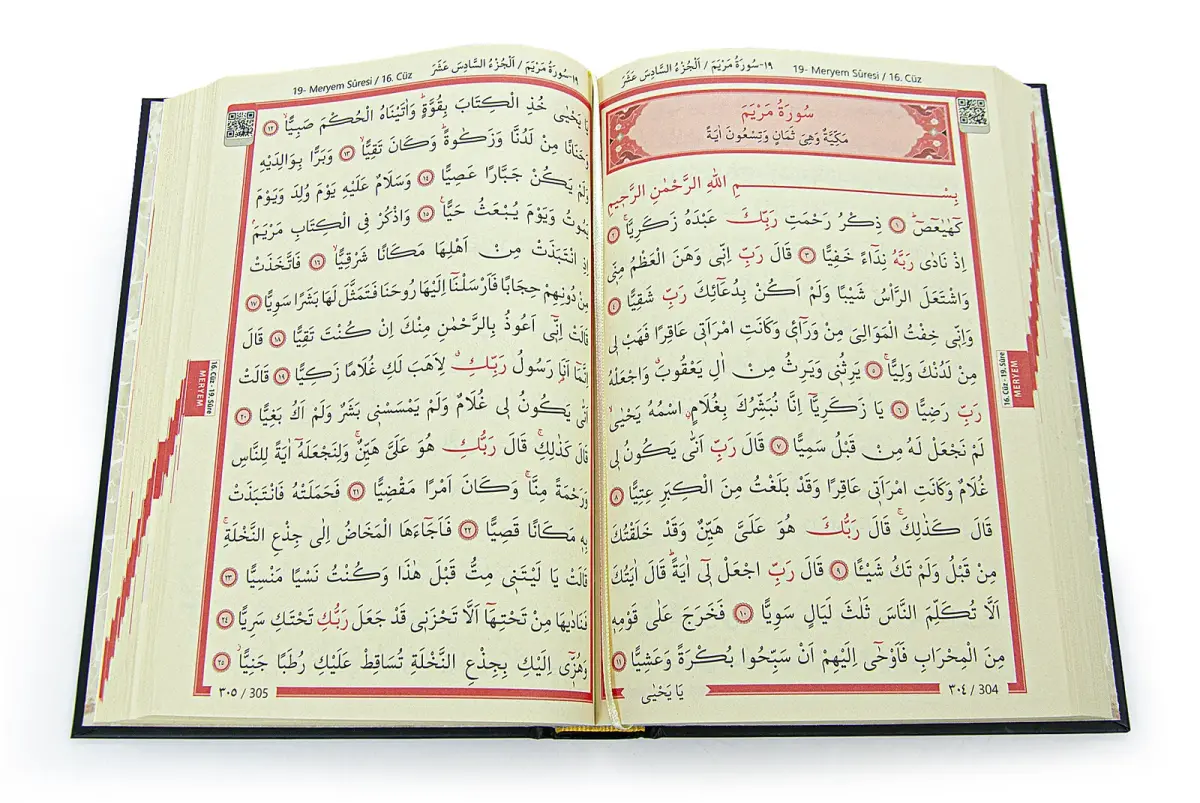 19- Meryem Sûresi / 16. Cüz
١٩-سُورَةُ مَرْيَمَ / اَلْجُزْءُ السَّادِسَ عَشَرَ
سُورَةُ مَرْيَمَ
مَكِّيَّةٌ وَهِىَ ثَمَانٍ وَتِسْعُونَ اٰيَةً
بِسْــــمِ اللّٰهِ الرَّحْمٰنِ الرَّحِيمِ
كٓهٰيٰعٓصٓ ﴿١﴾ ذِكْرُ رَحْمَتِ رَبِّكَ عَبْدَهُ زَكَرِيَّاۚ ﴿٢﴾
اِذْ نَادٰى رَبَّهُ نِدَٓاءً خَفِيًّا ﴿٣﴾ قَالَ رَبِّ اِنّٖى وَهَنَ الْعَظْمُ مِنّٖى
وَاشْتَعَلَ الرَّاْسُ شَيْبًا وَلَمْ اَكُنْ بِدُعَٓائِكَ رَبِّ شَقِيًّا ﴿٤﴾
وَاِنّٖى خِفْتُ الْمَوَالِىَ مِنْ وَرَٓائٖى وَكَانَتِ امْرَاَتٖى عَاقِرًا فَهَبْ لٖى
مِنْ لَدُنْكَ وَلِيًّاۙ ﴿٥﴾ يَرِثُنٖى وَيَرِثُ مِنْ اٰلِ يَعْقُوبَ وَاجْعَلْهُ
رَبِّ رَضِيًّا ﴿٦﴾ يَا زَكَرِيَّٓا اِنَّا نُبَشِّرُكَ بِغُلَامٍۨ اسْمُهُ يَحْيٰىۙ
لَمْ نَجْعَلْ لَهُ مِنْ قَبْلُ سَمِيًّا ﴿٧﴾ قَالَ رَبِّ اَنّٰى يَكُونُ لٖى
غُلَامٌ وَكَانَتِ امْرَاَتٖى عَاقِرًا وَقَدْ بَلَغْتُ مِنَ الْكِبَرِ عِتِيًّا ﴿٨﴾
قَالَ كَذٰلِكَۚ قَالَ رَبُّكَ هُوَ عَلَىَّ هَيِّنٌ وَقَدْ خَلَقْتُكَ
مِنْ قَبْلُ وَلَمْ تَكُ شَيْـًٔا ﴿٩﴾ قَالَ رَبِّ اجْعَلْ لٖٓى اٰيَةًؕ قَالَ اٰيَتُكَ
اَلَّا تُكَلِّمَ النَّاسَ ثَلٰثَ لَيَالٍ سَوِيًّا ﴿١٠﴾ فَخَرَجَ عَلٰى قَوْمِهٖ
مِنَ الْمِحْرَابِ فَاَوْحٰٓى اِلَيْهِمْ اَنْ سَبِّحُوا بُكْرَةً وَعَشِيًّا ﴿١١﴾
٣٠٤ / 304
يَا يَحْيٰى
16. Cüz - 19. Sûre
MERYEM
19- Meryem Sûresi / 16. Cüz
١٩-سُورَةُ مَرْيَمَ / اَلْجُزْءُ السَّادِسَ عَشَرَ
يَا يَحْيٰى خُذِ الْكِتَابَ بِقُوَّةٍؕ وَاٰتَيْنَاهُ الْحُكْمَ صَبِيًّاۙ ﴿١٢﴾
وَحَنَانًا مِنْ لَدُنَّا وَزَكٰوةًؕ وَكَانَ تَقِيًّاۙ ﴿١٣﴾ وَبَرًّا بِوَالِدَيْهِ
وَلَمْ يَكُنْ جَبَّارًا عَصِيًّا ﴿١٤﴾ وَسَلَامٌ عَلَيْهِ يَوْمَ وُلِدَ وَيَوْمَ
يَمُوتُ وَيَوْمَ يُبْعَثُ حَيًّا۟ ﴿١٥﴾ وَاذْكُرْ فِى الْكِتَابِ مَرْيَمَۢ
اِذِ انْتَبَذَتْ مِنْ اَهْلِهَا مَكَانًا شَرْقِيًّاۙ ﴿١٦﴾ فَاتَّخَذَتْ
مِنْ دُونِهِمْ حِجَابًا فَاَرْسَلْنَٓا اِلَيْهَا رُوحَنَا فَتَمَثَّلَ لَهَا بَشَرًا سَوِيًّا ﴿١٧﴾
قَالَتْ اِنّٖٓى اَعُوذُ بِالرَّحْمٰنِ مِنْكَ اِنْ كُنْتَ تَقِيًّا ﴿١٨﴾ قَالَ
اِنَّمَٓا اَنَا۬ رَسُولُ رَبِّكِۗ لِاَهَبَ لَكِ غُلَامًا زَكِيًّا ﴿١٩﴾ قَالَتْ
اَنّٰى يَكُونُ لٖى غُلَامٌ وَلَمْ يَمْسَسْنٖى بَشَرٌ وَلَمْ اَكُ بَغِيًّا ﴿٢٠﴾
قَالَ كَذٰلِكِۚ قَالَ رَبُّكِ هُوَ عَلَىَّ هَيِّنٌۚ وَلِنَجْعَلَهُٓ اٰيَةً لِلنَّاسِ
وَرَحْمَةً مِنَّاۚ وَكَانَ اَمْرًا مَقْضِيًّا ﴿٢١﴾ فَحَمَلَتْهُ فَانْتَبَذَتْ
بِهٖ مَكَانًا قَصِيًّا ﴿٢٢﴾ فَاَجَٓاءَهَا الْمَخَاضُ اِلٰى جِذْعِ النَّخْلَةِۚ
قَالَتْ يَا لَيْتَنٖى مِتُّ قَبْلَ هٰذَا وَكُنْتُ نَسْيًا مَنْسِيًّا ﴿٢٣﴾
فَنَادٰيهَا مِنْ تَحْتِهَٓا اَلَّا تَحْزَنٖى قَدْ جَعَلَ رَبُّكِ تَحْتَكِ سَرِيًّا ﴿٢٤﴾
وَهُزّٖٓى اِلَيْكِ بِجِذْعِ النَّخْلَةِ تُسَاقِطْ عَلَيْكِ رُطَبًا جَنِيًّاۘ ﴿٢٥﴾
٣٠٥ / 305
16. Cüz - 19. Sûre
MERYEM